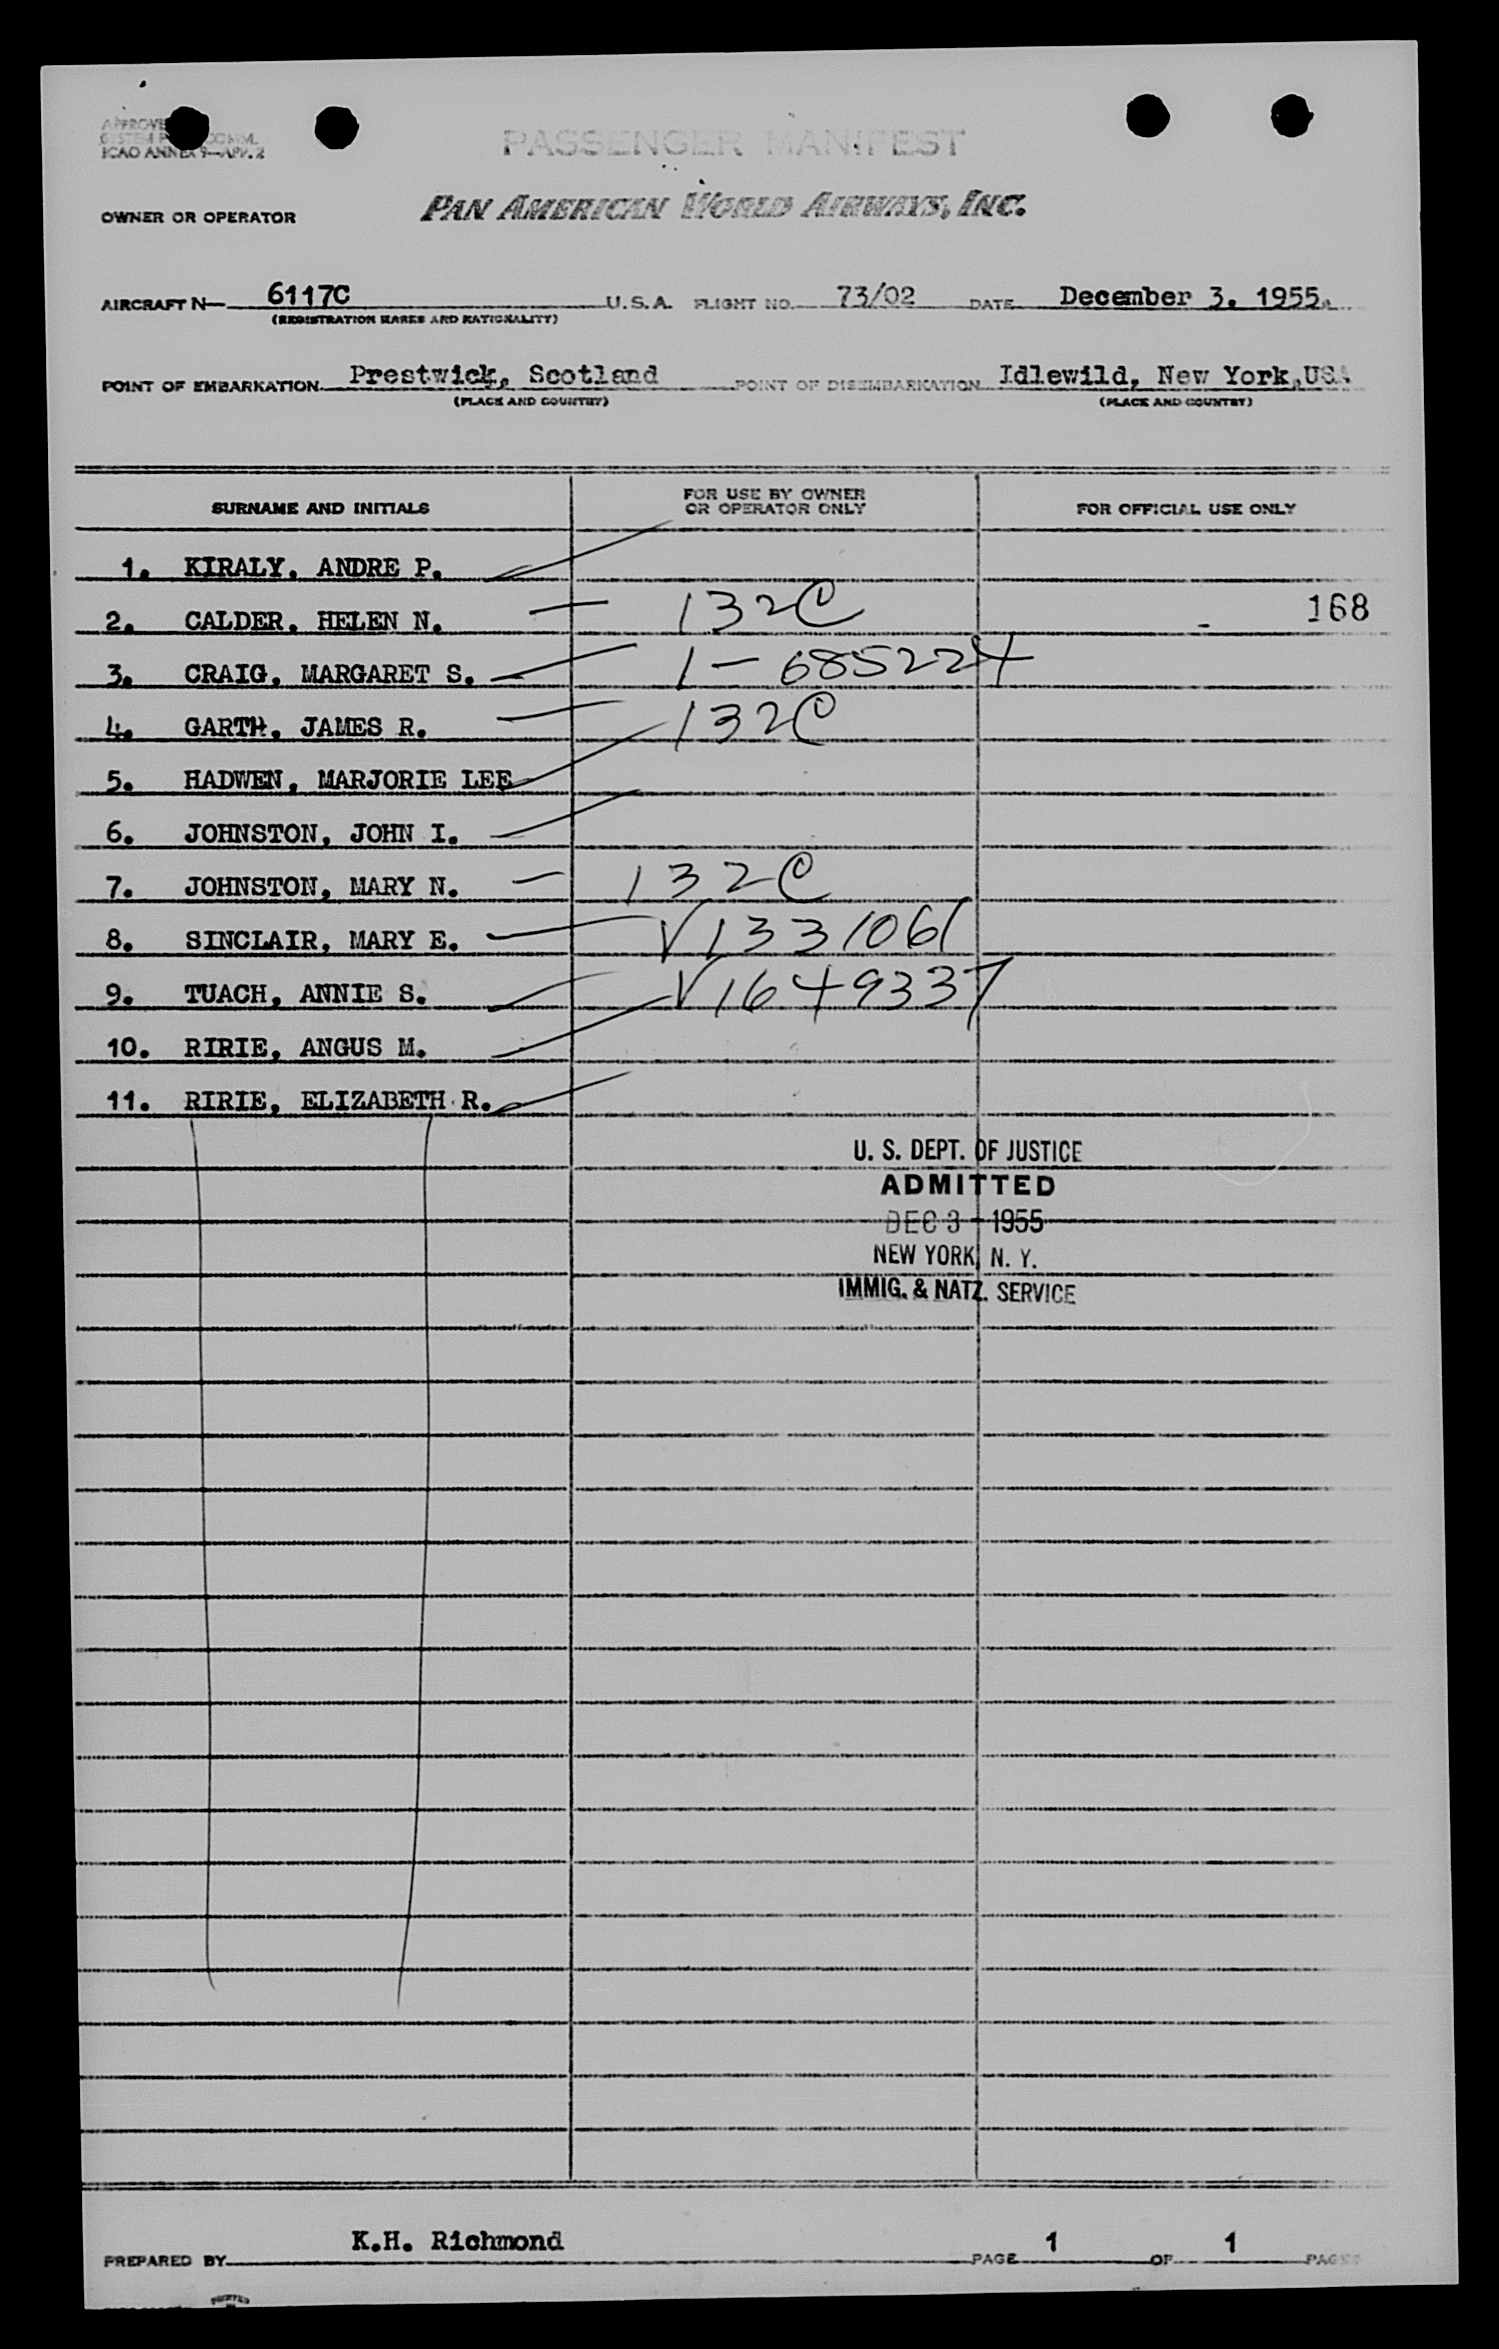 ICAO ANNEX 9—APP. 2
PASSENGER MANIFEST
OWNER OR OPERATOR PAN AMERICAN WORLD AIRWAYS, INC.
AIRCRAFT N— 6117C U.S.A. FLIGHT NO. 73/02 DATE December 3. 1955.
(REGISTRATION MARKS AND NATIONALITY)
POINT OF EMBARKATION Prestwick, Scotland POINT OF DISEMBARKATION Idlewild, New York,USA
(PLACE AND COUNTRY) (PLACE AND COUNTRY)
SURNAME AND INITIALS FOR USE BY OWNER OR OPERATOR ONLY FOR OFFICIAL USE ONLY
1. KIRALY. ANDRE P.
2. CALDER. HELEN N. — 132C - 168
3. CRAIG, MARGARET S. 1-685224
4. GARTH, JAMES R. 132C
5. HADWEN, MARJORIE LEE
6. JOHNSTON, JOHN I.
7. JOHNSTON, MARY N. — 132C
8. SINCLAIR, MARY E. V1331061
9. TUACH, ANNIE S. V1649337
10. RIRIE, ANGUS M.
11. RIRIE, ELIZABETH R.
U. S. DEPT. OF JUSTICE
ADMITTED
DEC 3 - 1955
NEW YORK, N. Y.
IMMIG. & NATZ. SERVICE
PREPARED BY K.H. Richmond PAGE 1 OF 1 PAGES
PRINTED